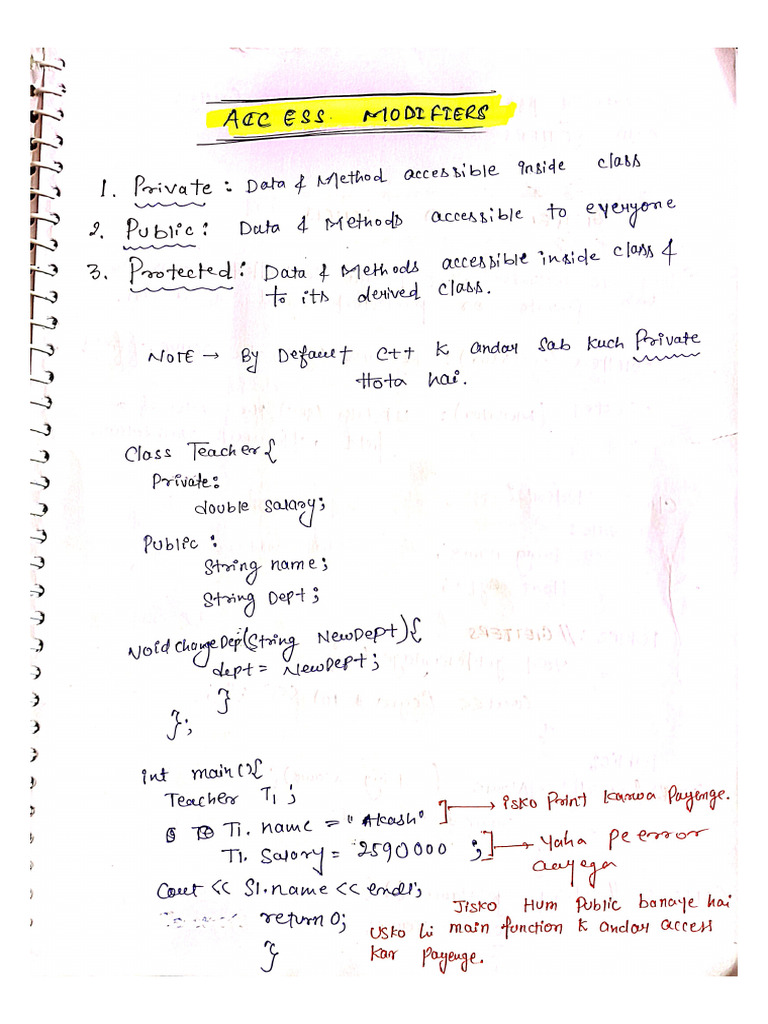 ACCESS MODIFIERS
1. Private : Data & Method accessible inside class
2. Public : Data & Methods accessible to everyone
3. Protected : Data & Methods accessible inside class &
to its derived class.
NOTE → By Default C++ K andar Sab Kuch Private
Hota hai.
Class Teacher{
Private:
double salary;
Public :
String name;
String Dept ;
Void changeDep(String NewDept){
dept = NewDept;
}
};
int main(){
Teacher T1 ;
T1. name = "Akash" → isko Print Karwa Payenge.
T1. Salary = 2590000 ; → Yaha Pe error
aayega
Cout << S1.name << endl;
Jisko Hum Public banaye hai
return 0;
usko hi main function K andar access
}
Kar Payenge.